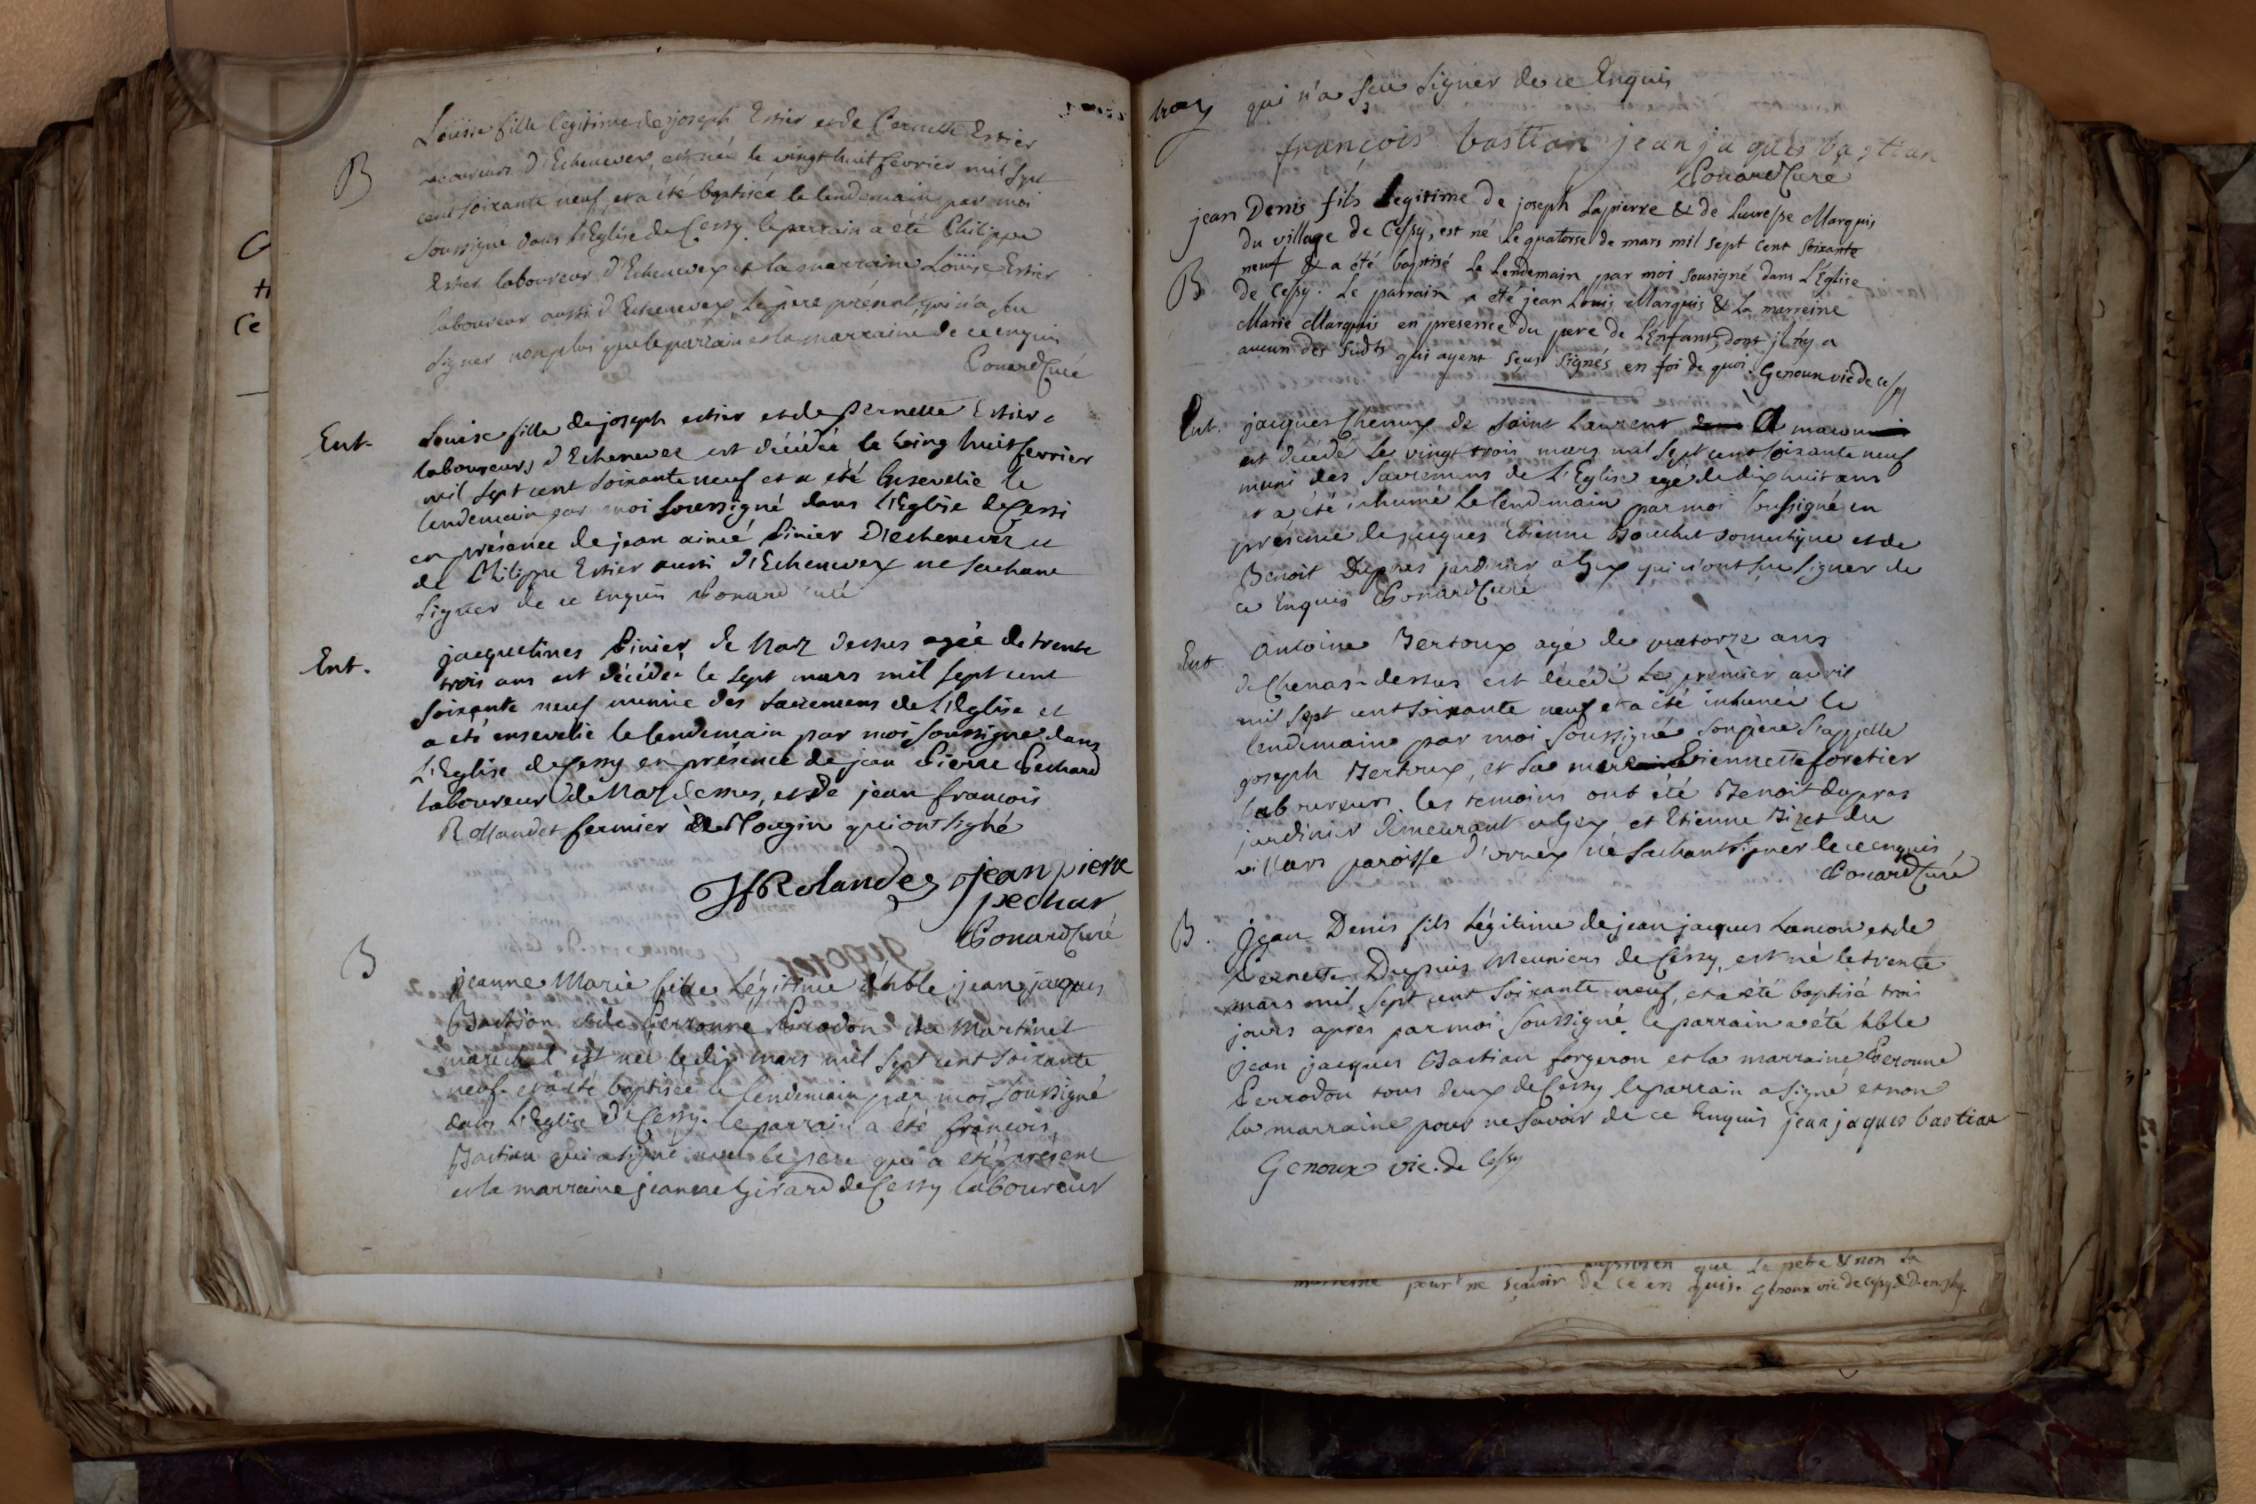 B
Loüise fille légitime de joseph Estier et de Pernette Estier
laboureurs d'Echenevex, est née le vingt huit fevrier mil sept
cent soixante neuf, et a été baptisée le lendemain par moi
soussigné dans l'Eglise de Cessy. le parrain a été Philippe
Estier laboureur d'Echenevex et la marraine Loüise Estier
laboureur aussi d'Echenevex, le pere présent, qui n'a su
signer non plus que le parrain et la marraine de ce enquis
Couard Curé
Ent.
Louise fille de joseph estier et de Pernette Estier
laboureurs d'Echenevex est décédée le ving huit fevrier
mil sept cent soixante neuf et a été Ensevelie le
lendemain par moi soussigné dans l'Eglise de Cessi
en présence de jean aimé Pinier D'echenevex et
de Philippe Estier aussi d'Echenevex ne sachant
signer de ce enquis Couard curé
Ent.
jacquelines Pinier de Naz dessus agée de trente
trois ans est décédée le sept mars mil sept cent
soixante neuf munie des sacremens de L'Eglise et
a été ensevelie le lendemain par moi soussigné dans
L'Eglise de Cessy en présence de jean Pierre Pechard
laboureur de Naz dessus, et de jean francois
Rollandet fermier de Mougin qui ont signé
JfRolandez jean pierre
pechar
Couard Curé
B
jeanne Marie fille Légitime d'hble jean jaques
Bastian et de Perronne Perrodon dit Martinet
maréchal est née le dix mars mil sept cent soixante
neuf et a été baptisée le lendemain par moi soussigné
dans l'Eglise de Cessy. le parrain a été françois
Bastian qui a signé avec le pere qui a été présent
et la marraine jeanne Girard de Cessy laboureur
qui n'a sçu signer de ce Enquis
françois bastian jean jaques bastian
Couard Curé
jean Denis fils legitime de joseph Lapierre & de Lucresse Marquis
du village de Cessy, est né le quatorse de mars mil sept cent soixante
B
neuf & a été baptisé le lendemain par moi sousigné dans l'Église
de Cessy. Le parrain a été jean Louis Marquis & la marreine
Marie Marquis en presence du pere de l'Enfant, dont il n'y a
aucun des sudts qui ayent sçus signés en foi de quoi. Genoux vic de Cessy
Ent.
jacques Chenux de saint Laurent
est décédé le vingt trois mars mil sept cent soixante neuf
muni des sacremens de l'Eglise agé de dix huit ans
et a été inhumé le lendemain par moi soussigné en
présence de jacques Etienne Bouchet domestique et de
Benoit Dupras jardinier a Gex qui n'ont su signer de
ce Enquis Couard Curé
Ent
Antoine Bertoux agé de quatorze ans
de Chenas-dessus est décédé le premier avril
mil sept cent soixante neuf et a été inhumé le
lendemain par moi soussigné son père s'appelle
joseph Bertoux, et sa mere Piennette foretier
laboureurs. les temoins ont été Benoit dupras
jardinier demeurant a Gex et Etienne Bizet du
villars paroisse d'ornex ne sachant signer de ce enquis
Couard Curé
B.
Jean Denis fils Légitime de jean jacques Lancon et de
Pernette Dupuis Meuniers de Cessy, est né le trente
mars mil sept cent soixante neuf, et a été baptisé trois
jours après par moi soussigné le parrain a été hble
jean jacques Bastian forgeron et la marraine Peronne
Perrodon tous deux de Cessy le parrain a signé et non
la marraine pour ne savoir de ce Enquis jean jaques bastian
Genoux vic. de Cessy
que le pere & non la
marreine pour ne sçavoir de ce en quis. Genoux vic de Cessy